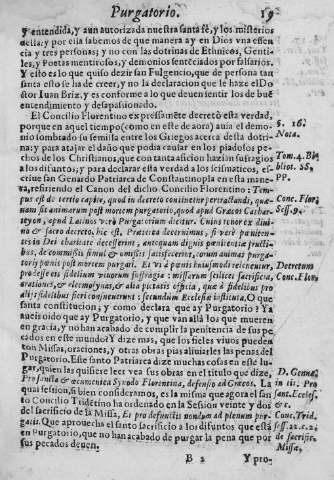 Purgatorio. 19
y entendida, y aun autorizada nuestra santa fè, y los misterios
della: y por ella sabemos de que manera ay en Dios vna essen
cia y tres personas; y no con las dotrinas de Ethnicos, Genti-
les, y Poetas mentirosos, y demonios sentēciados por falsarios.
Y esto es lo que quiso dezir san Fulgencio, que de persona tan
santa esto se ha de creer, y no la declaracion que le haze el Do
ctor Iuan Briz, y es conforme a lo que deuen sentir los de buē
entendimiento y desapassionado.
El Concilio Florentino expressamēte decretò esta verdad,
porque en aquel tiempo (como en este de aora) auia el demo-
nio sombrado su semilla entre los Griegos acerca desta dotri-
na: y para atajar el daño que podia caular en los piadosos pe-
chos de los Christianos, que con tanta asicion hazian sufragios
a los difuntos; y para declarar esta verdad a los scismaticos, es-
criue san Genardo Patriarca de Constantinopla en esta mane-
ra, refiriendo el Canon del dicho Concilio Florentino: Tem-
pus est de tertio capite, quod in decreto continetur pertractandi, quo-
niam sic animarum post mortem purgatio, quod apud Græcos Cathar-
teyon, apud Latinos verò Purgatorium dicitur. Cuius tenor ex diui-
no & sacro decreto, hic est. Præterea decernimus, si verè pœniten-
tes in Dei charitate decesserint, antequam dignis pœnitentiæ fructi-
bus, de commissis simul & omissis satisfecerint, eorum animas purga-
torijs pœnis post mortem purgari. Et vt à pœnis huiusmodi releuentur,
prodesse eis fidelium viuorum suffragia: missarum scilicet sacrificia,
orationes, & eleemosynas, & alia pietatis officia, quæ à fidelibus pro
alijs fidelibus fieri consueuerunt: secundum Ecclesiæ instituta. O que
santa constitucion; y como declara que ay Purgatorio? Ya
aueis oido que ay Purgatorio, y que van allà los que mueren
en gracia, y no han acabado de cumplir la penitencia de sus pe
cados en este mundo? Y dize mas, que los fieles viuos pueden
con Missas, oraciones, y otras obras pias aliuiarles las penas del
Purgatorio. Este santo Patriarca dize muchas cosas en este lu-
gar, quien las quisiere leer vea sus obras en el titulo que dize,
Pro sancta & œcumenica Synodo Florentina, defensio ad Græcos. La
qual session, si bien consideramos, es la misma que agora el san
to Concilio Tridētino ha ordenado en la Session veinte y dos
del sacrificio de la Missa, Et pro defunctis nondum ad plenum pur-
gatis. Que aprouecha el santo sacrificio a los difuntos que està
en Purgatorio, que no han acabado de purgar la pena que por
sus pecados deuen.
B 2 Y pro-
§. 16.
Nota.
Tom. 4. Bi
bliot. SS.
PP.
Conc. Flor.
Sess. 9.
Decretum
Conc. Flor.
D. Genna.
in tit. Pro
sanct. Eccles.
&c.
Conc. Trid.
sess. 22. c. 2.
de sacrific.
Missæ.